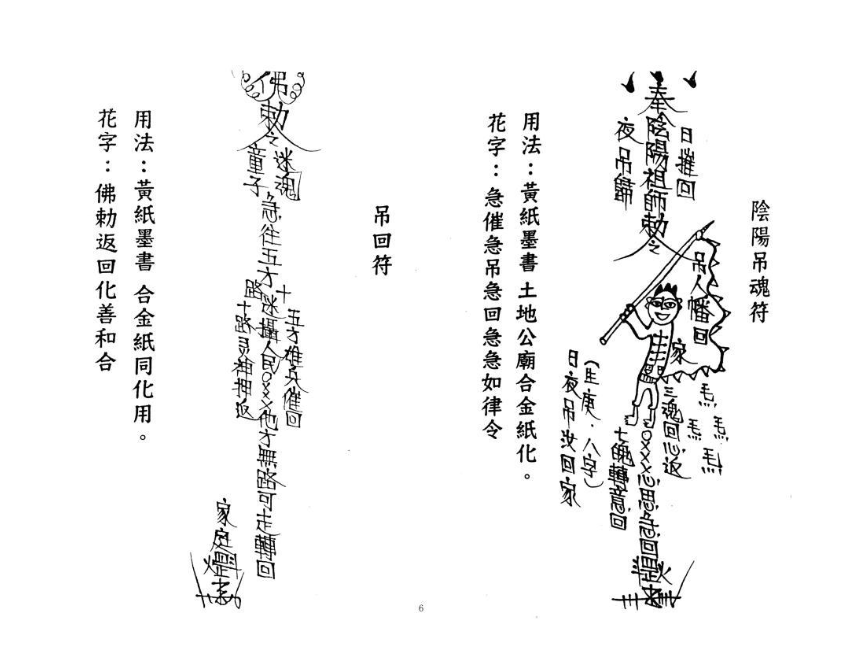 陰陽吊魂符
日催回
奉陰陽祖師勅之
夜吊歸
吊人幡回
家
三魂回心返
OXXX心思急回
七魄轉意回
(生庚·八字)
日夜吊汝回家
用法：黃紙墨書 土地公廟合金紙化。
花字：急催急吊急回急急如律令
吊回符
佛勅之
迷魂
童子
急往五方
迷攝人民OXXX他方無路可走轉回
五方雄兵催回
十路
神押返
家庭
用法：黃紙墨書 合金紙同化用。
花字：佛勅返回化善和合
6